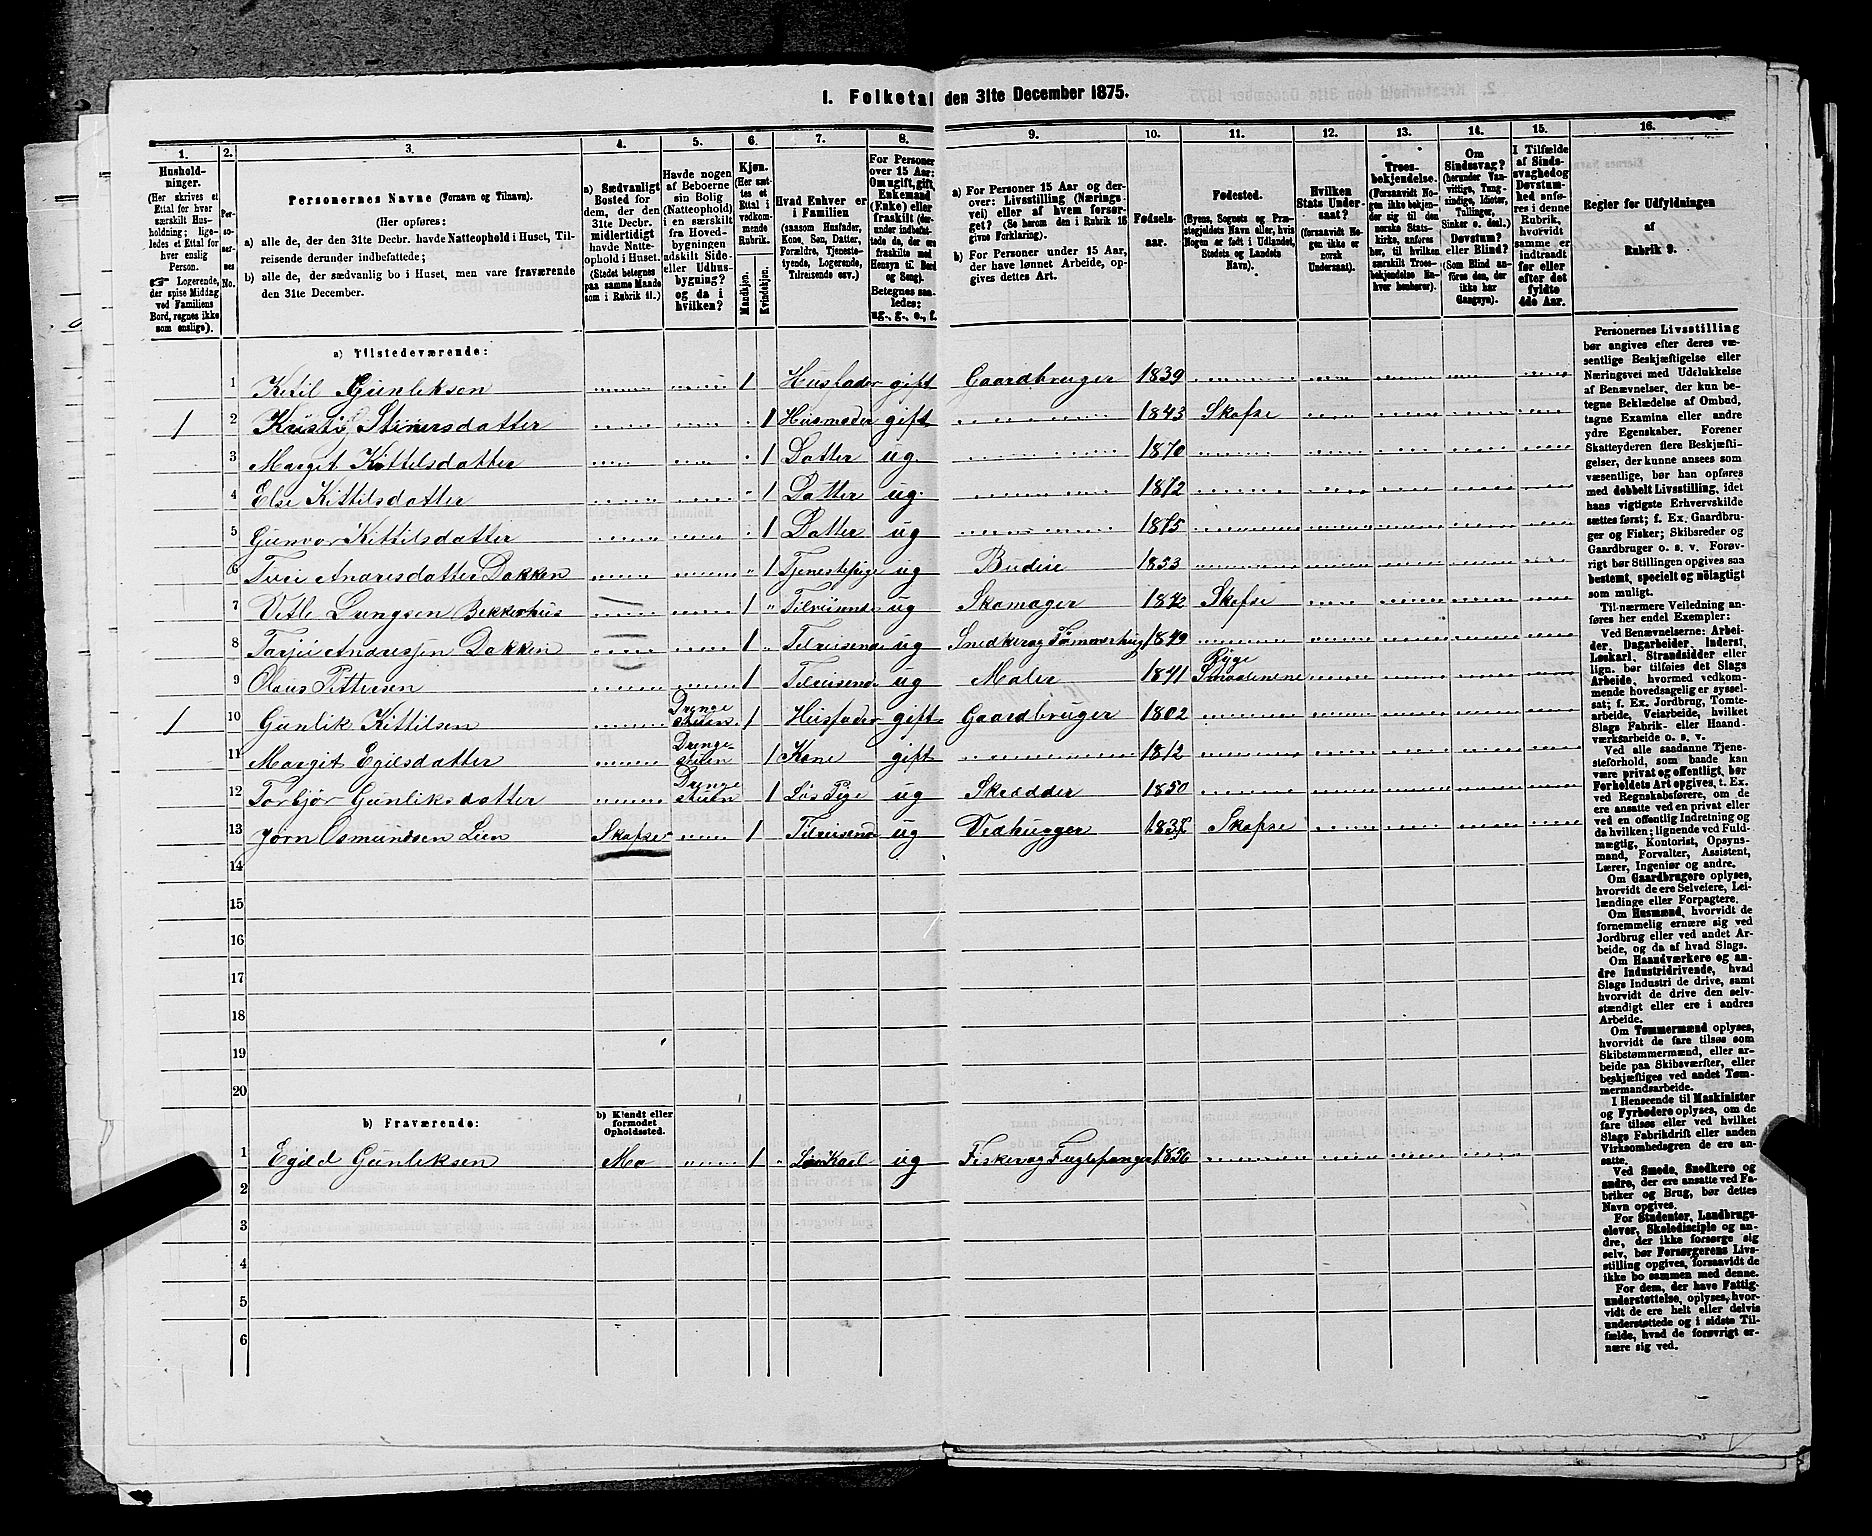 I. Folketal den 31te December 1875.
1. 2. 3. 4. 5. 6. 7. 8. 9. 10. 11. 12. 13. 14. 15. 16.
Husholdninger.
(Her skrives et Ettal for hver særskilt Husholdning; ligeledes et Ettal for hver enslig Person.
☞ Logerende, der spise Middag ved Familiens Bord, regnes ikke som enslige).
Personernes No.
Personernes Navne (Fornavn og Tilnavn).
(Her opføres:
a) alle de, der den 31te Decbr. havde Natteophold i Huset, Tilreisende derunder indbefattede;
b) alle de, der sædvanlig bo i Huset, men vare fraværende den 31te December.
a) Sædvanligt Bosted for dem, der den 31te Decbr. midlertidigt havde Natteophold i Huset. (Stedet betegnes paa samme Maade som i Rubrik 11.)
Havde nogen af Beboerne sin Bolig (Natteophold) i en særskilt fra Hovedbygningen adskilt Side- eller Udhusbygning? og da i hvilken?
Kjøn. (Her sættes et Ettal i vedkommende Rubrik.)
Mandkjøn. Kvindekjøn.
Hvad Enhver er i Familien
(saasom Husfader, Kone, Søn, Datter, Forældre, Tjenestetyende, Logerende, Tilreisende osv.)
For Personer over 15 Aar: Om ugift, gift, Enkemand (Enke) eller fraskilt (derunder indbefattede de, der ere fraskilte med Hensyn til Bord og Seng). Betegnes saaledes: ug., g., e., f.
a) For Personer 15 Aar og derover: Livsstilling (Næringsvei) eller af hvem forsørget? (Se herom den i Rubrik 16 givne Forklaring).
b) For Personer under 15 Aar, der have lønnet Arbeide, opgives dettes Art.
Fødselsaar.
Fødested.
(Byens, Sognets og Præstegjeldets Navn eller, hvis Nogen er født i Udlandet, Stedets og Landets Navn).
Hvilken Stats Undersaat? (forsaavidt Nogen ikke er norsk Undersaat).
Troesbekjendelse. (Forsaavidt Nogen ikke bekjender sig til den norske Statskirke, anføres her, til hvilken særskilt Troesbekjendelse Enhver henhører).
Om Sindssvag? (herunder Vanvittige, Tungsindige, Idioter, Tullinger, Sinker o. desl.) Døvstum? eller Blind? (Som Blind anføres den, der ikke har Gangsyn).
I Tilfælde af Sindssvaghed og Døvstumhed anføres i denne Rubrik, hvorvidt samme er indtraadt før eller efter det fyldte 4de Aar.
Regler for Udfyldningen af Rubrik 9.
a) Tilstedeværende:
1 Kitil Gunlikson Husfader gift Gaardbruger 1839
1 2 Kristi Steinersdatter 1 Husmoder gift 1843 Skafse
3 Margit Kittilsdatter 1 Datter ug. 1870
4 Else Kittilsdatter 1 Datter ug. 1872
5 Gunvor Kittilsdatter 1 Datter ug 1875
6 Andrisdatter Dokken 1 Tjenestepige ug Budeie 1853
7 Vetle Bekkerhus 1 Tilreisende ug Skomager Skafse
8 Tarjei Andresen Dokken 1 Tilreisende ug Snedker og Tømmerhug 1849
9 Olaus Pittersen 1 Tilreisende ug Maler 1841 Ryge Smaalenene
1 10 Gunlik Kittilsen Drengestuen 1 Husfader gift Gaardbruger 1802
11 Margit Egilsdatter Drengestuen 1 Kone gift 1812
12 Torbjør Gunliksdatter Drengestuen 1 Løs Pige ug Skrædder 1850
13 Jørn Osmundsen Lien Skafse 1 Tilreisend ug Vedhugger Skafse
14
15
16
17
18
19
20
b) Fraværende: b) Kjendt eller formodet Opholdssted.
1 Egild Gunliksen Mo 1 Løskarl ug Fisker og Fuglefanger 1856
2
3
4
5
6
Personernes Livsstilling
bør angives efter deres væsentlige Beskjæftigelse eller
Næringsvei med Udelukkelse
af Benævnelser, der kun betegne Beklædelse af Ombud,
tagne Examina eller andre
ydre Egenskaber. Forener
Skatteyderen flere Beskjæftigelser, der kunne ansees som
væsentlige, bør han opføres
med dobbelt Livsstilling, idet
hans vigtigste Erhvervskilde
sættes først; f. Ex. Gaardbruger og Fisker; Skibsreder og
Gaardbruger o. s. v. Forøvrigt bør Stillingen opgives saa
bestemt, specielt og nøiagtigt
som muligt.
Til nærmere Veiledning anføres her endel Exempler:
Ved Benævnelserne: Arbeider, Dagarbeider, Inderst,
Løskarl, Strandsidder eller
lign. bør tilføies det Slags
Arbeide, hvormed vedkommende hovedsagelig er sysselsat; f. Ex. Jordbrug, Tomtearbeide, Veiarbeide, hvilket
Slags Fabrik- eller Haandværksarbeide o. s. v.
Ved alle saadanne Tjenesteforhold, som baade kan
være privat og offentligt, bør
Forholdets Art opgives, t. Ex.
ved Regnskabsførere, om de
ere ansatte ved en privat eller
ved en offentlig Indretning og
da hvilken; lignende ved Fuldmægtig, Kontorist, Opsynsmand, Forvalter, Assistent,
Lærer, Ingeniør og andre.
Om Gaardbrugere oplyses,
hvorvidt de ere Selveiere, Leilændinge eller Forpagtere.
Om Husmænd, hvorvidt de
fornemmelig ernære sig ved
Jordbrug eller ved andet Arbeide, og da af hvad Slags.
Om Haandværkere og andre Industridrivende, hvad
Slags Industri de drive, samt
hvorvidt de drive den selvstændigt eller ere i andres
Arbeide.
Om Tømmermænd oplyses,
hvorvidt de fare tilsøs som
Skibstømmermænd, eller arbeide paa Skibsværfter, eller
beskjæftiges ved andet Tømmermandsarbeide.
I Henseende til Maskinister
og Fyrbødere oplyses, om de
fare tilsøs eller ved hvilket
Slags Fabrikdrift eller anden
Virksomhedsgren de ere ansatte.
Ved Smede, Snedkere og
andre, der ere ansatte ved Fabriker og Brug, bør dettes
Navn opgives.
For Studenter, Landbrugselever, Skoledisciple og andre, der ikke forsørge sig
selv, bør Forsørgerens Livsstilling opgives, forsaavidt de
ikke bo sammen med denne.
For dem, der have Fattigunderstøttelse, oplyses, hvorvidt de ere helt eller delvis
understøttede og i sidste Tilfælde, hvad de forøvrigt ernære sig ved.